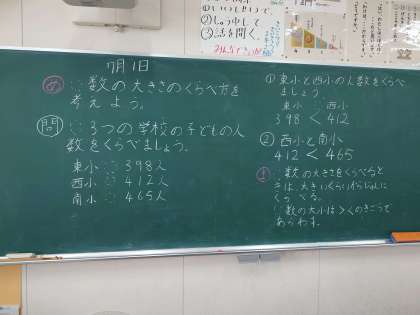 ②しゅ中して
③話を聞く。
7月1日
め 数の大きさのくらべ方を
考えよう。
問 3つの学校の子どもの人
数をくらべましょう。
東小 398人
西小 412人
南小 465人
① 東小と西小の人数をくらべ
ましょう
東小 西小
398 < 412
② 西小と南小
412 < 465
数の大きさをくらべると
きは、大きいくらいからじゅんに
くらべる。
数の大小は><のきごうで
あらわす。